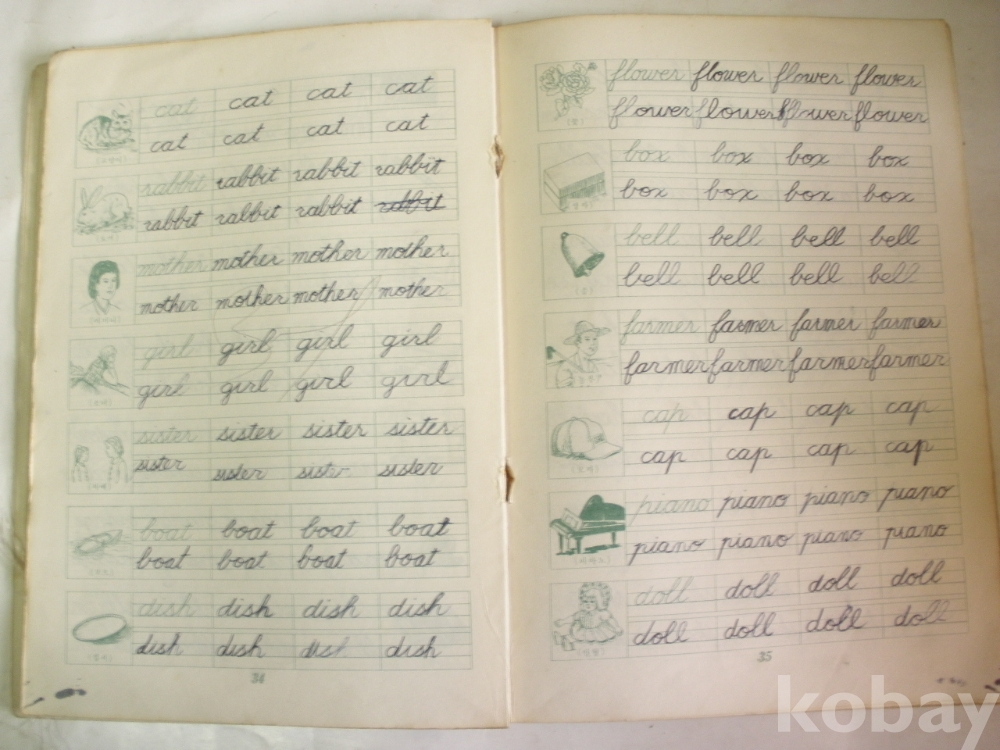 cat cat cat cat
cat cat cat cat
rabbit rabbit rabbit rabbit
rabbit rabbit rabbit
mother mother mother mother
mother mother mother mother
girl girl girl girl
girl girl girl girl
sister sister sister sister
sister sister sister
boat boat boat boat
boat boat boat boat
dish dish dish dish
dish dish dish dish
34
flower flower flower flower
flower flower flower flower
box box box box
box box box box
bell bell bell bell
bell bell bell bell
farmer farmer farmer farmer
farmer farmer farmer farmer
cap cap cap cap
cap cap cap cap
piano piano piano piano
piano piano piano piano
doll doll doll doll
doll doll doll doll
35
kobay